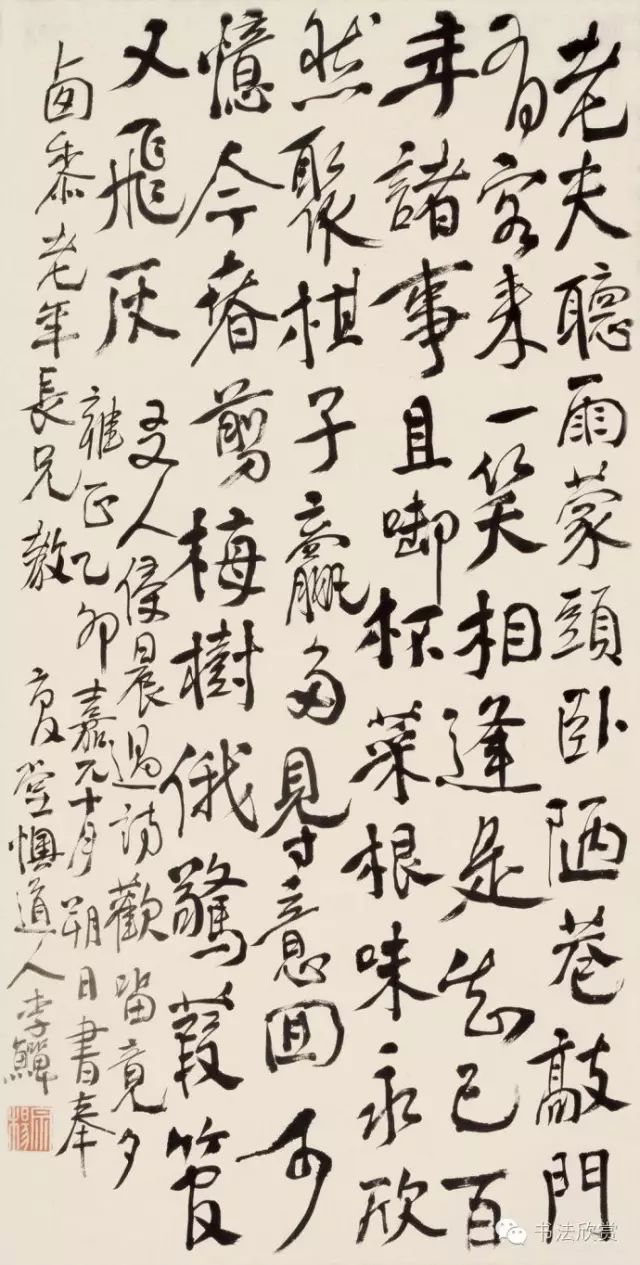 老夫聽雨蒙頭卧陋巷敲門
有客来一笑相逢是知己百
年諸事且啣杯菜根味永欣
然聚棋子贏多見寸意回可
憶今春剪梅樹俄驚葭管
又飛灰
友人侵晨過訪歡留竟夕
雍正乙卯十月朔日書奉
老年長兄教 復堂懊道人李鱓
书法欣赏